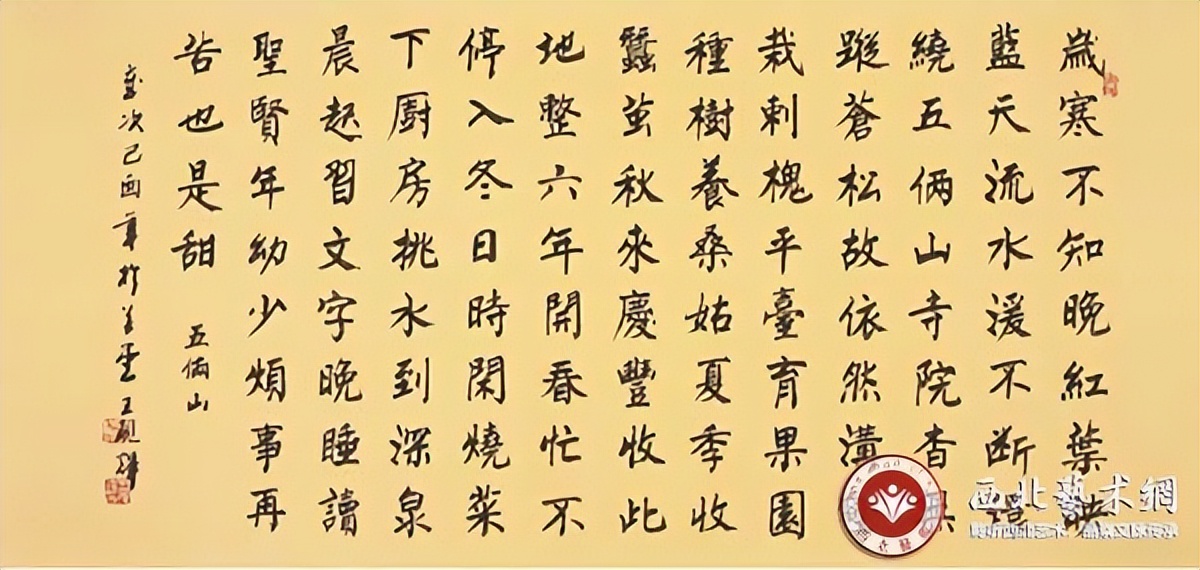 歲寒不知晚紅葉
藍天流水湲不断
繞五俩山寺院杳
蹤蒼松故依然
栽刺槐平臺育果園
種樹養桑姑夏季收
蠶茧秋來慶豐收此
地整六年開春忙不
停入冬日時閑燒菜
下厨房挑水到深泉
晨起習文字晚睡讀
聖賢年幼少煩事再
告也是甜 五俩山
歲次己酉
西北藝术網